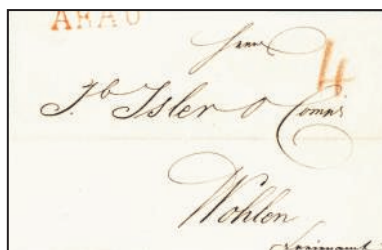 ARAU
4
Jb Isler & Comp.
Wohlen